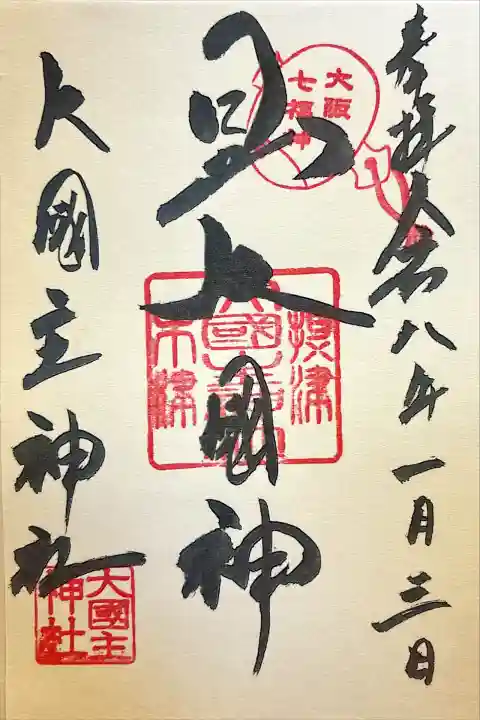 奉拝 令和八年一月三日
大阪
七福神
日出大國神
摂津
大國主
木津
大國主神社
大國主
神社